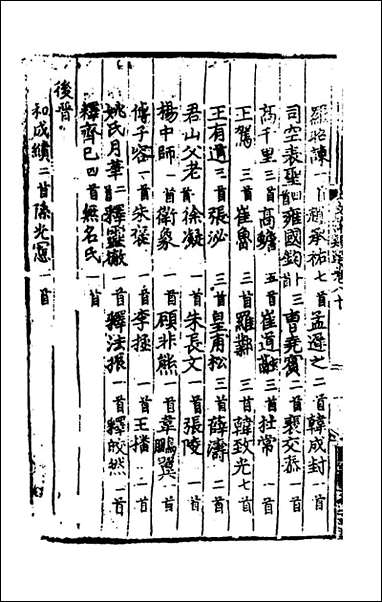 羅昭諫一首 潘承祐七首 孟遲之二首 韓成封一首
司空表聖四首 雍國鈞 三首 曹堯賓二首 裴交泰一首
高千里三首 高蟾五首 崔道融三首 杜常一首
王駕三首 崔魯三首 羅鄴三首 韓致光七首
王有道三首 張泌三首 皇甫松二首 薛濤二首
君山父老一首 徐凝一首 朱長文一首 張陵一首
楊中師一首 衛象一首 顧非熊一首 韋鵬翼一首
傅子容一首 朱褒一首 李拯一首 王播二首
姚氏月華二首 釋靈徹一首 釋法振一首 釋皎然一首
釋齊已四首 無名氏一首
後晉
和成績二首 陳光憲一首